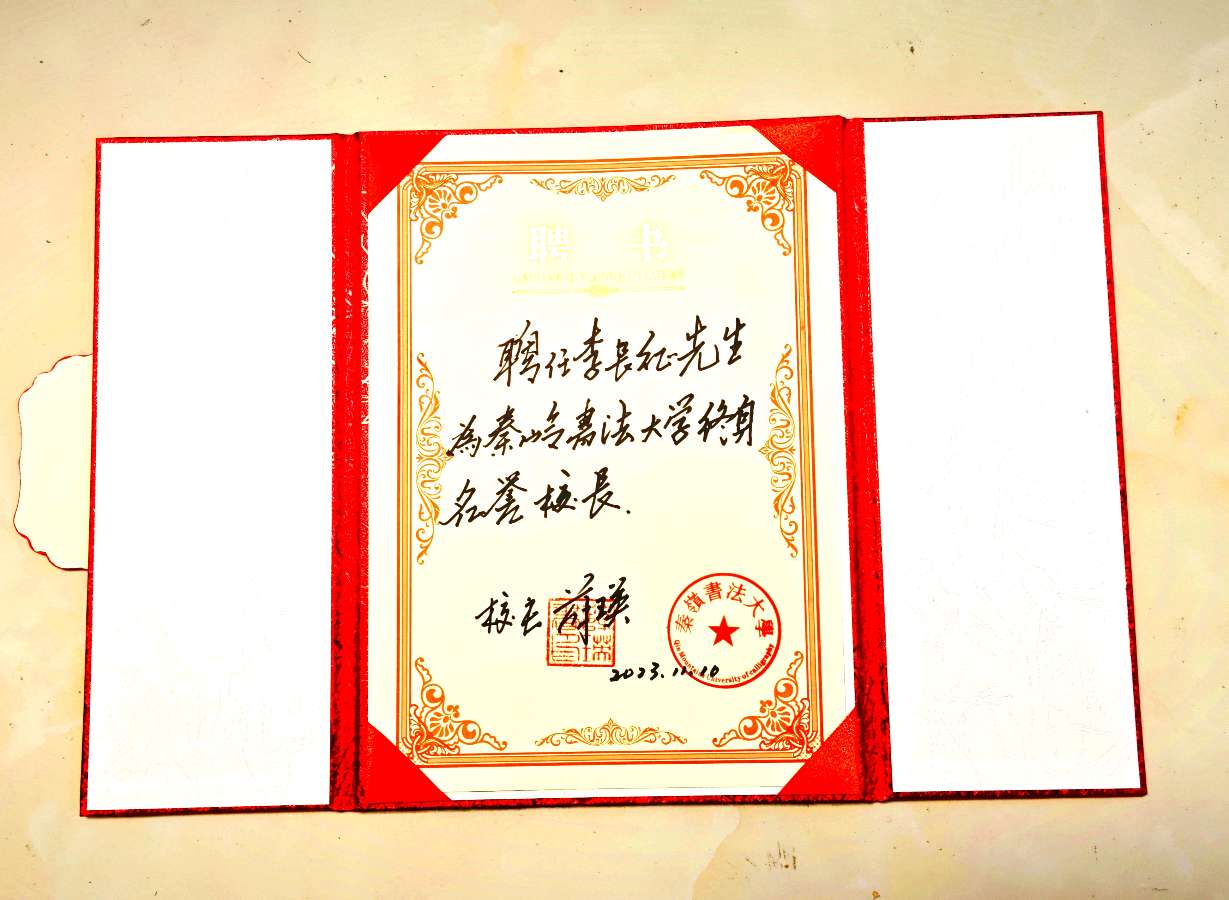 聘 书
聘任李長征先生
為秦岭書法大学终身
名誉校長.
校长 薛瑛
秦嶺書法大學
Qin Mountains University of calligraphy
2023.11.10